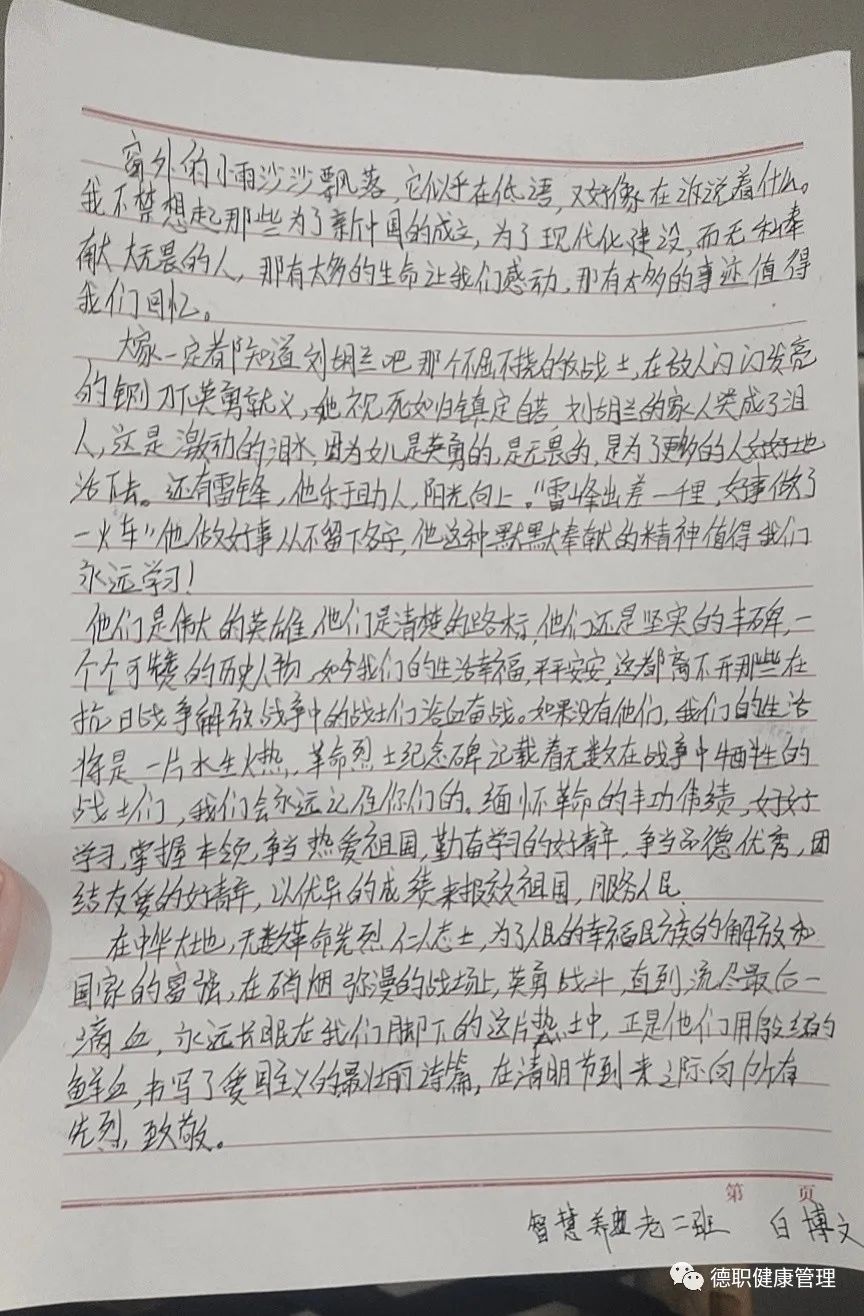 窗外的小雨沙沙飘落,它似乎在低语,又好像在诉说着什么。
我不禁想起那些为了新中国的成立,为了现代化建设,而无私奉
献大无畏的人,那有太多的生命让我们感动,那有太多的事迹值得
我们回忆。
大家一定都知道刘胡兰吧那个不屈不挠的女战士,在敌人闪闪发亮
的铡刀下英勇就义,她视死如归镇定自若 刘胡兰的家人哭成了泪
人,这是激动的泪水,因为女儿是英勇的,是无畏的,是为了更多的人好好地
活下去。还有雷锋,他乐于助人,阳光向上。“雷峰出差一千里,好事做了
一火车”他做好事从不留下名字,他这种默默奉献的精神值得我们
永远学习!
他们是伟大的英雄,他们是清楚的路标,他们还是坚实的丰碑,一
个个可赞的历史人物,如今我们的生活幸福,平平安安,这都离不开那些在
抗日战争解放战争中的战士们浴血奋战。如果没有他们,我们的生活
将是一片水生火热,革命烈士纪念碑记载着无数在战争中牺牲的
战士们,我们会永远记住你们的。缅怀革命的丰功伟绩,好好
学习,掌握本领,争当热爱祖国,勤奋学习的好青年,争当品德优秀,团
结友爱的好青年,以优异的成绩来报效祖国,服务人民
在中华大地,无数革命先烈仁人志士,为了人民的幸福民族的解放和
国家的富强,在硝烟弥漫的战场上,英勇战斗,直到,流尽最后一
滴血,永远长眠在我们脚下的这片热土中,正是他们用殷红的
鲜血,书写了爱国主义的最壮丽诗篇,在清明节到来之际向所有
先烈,致敬。
第 页
智慧养老二班 白博文
德职健康管理